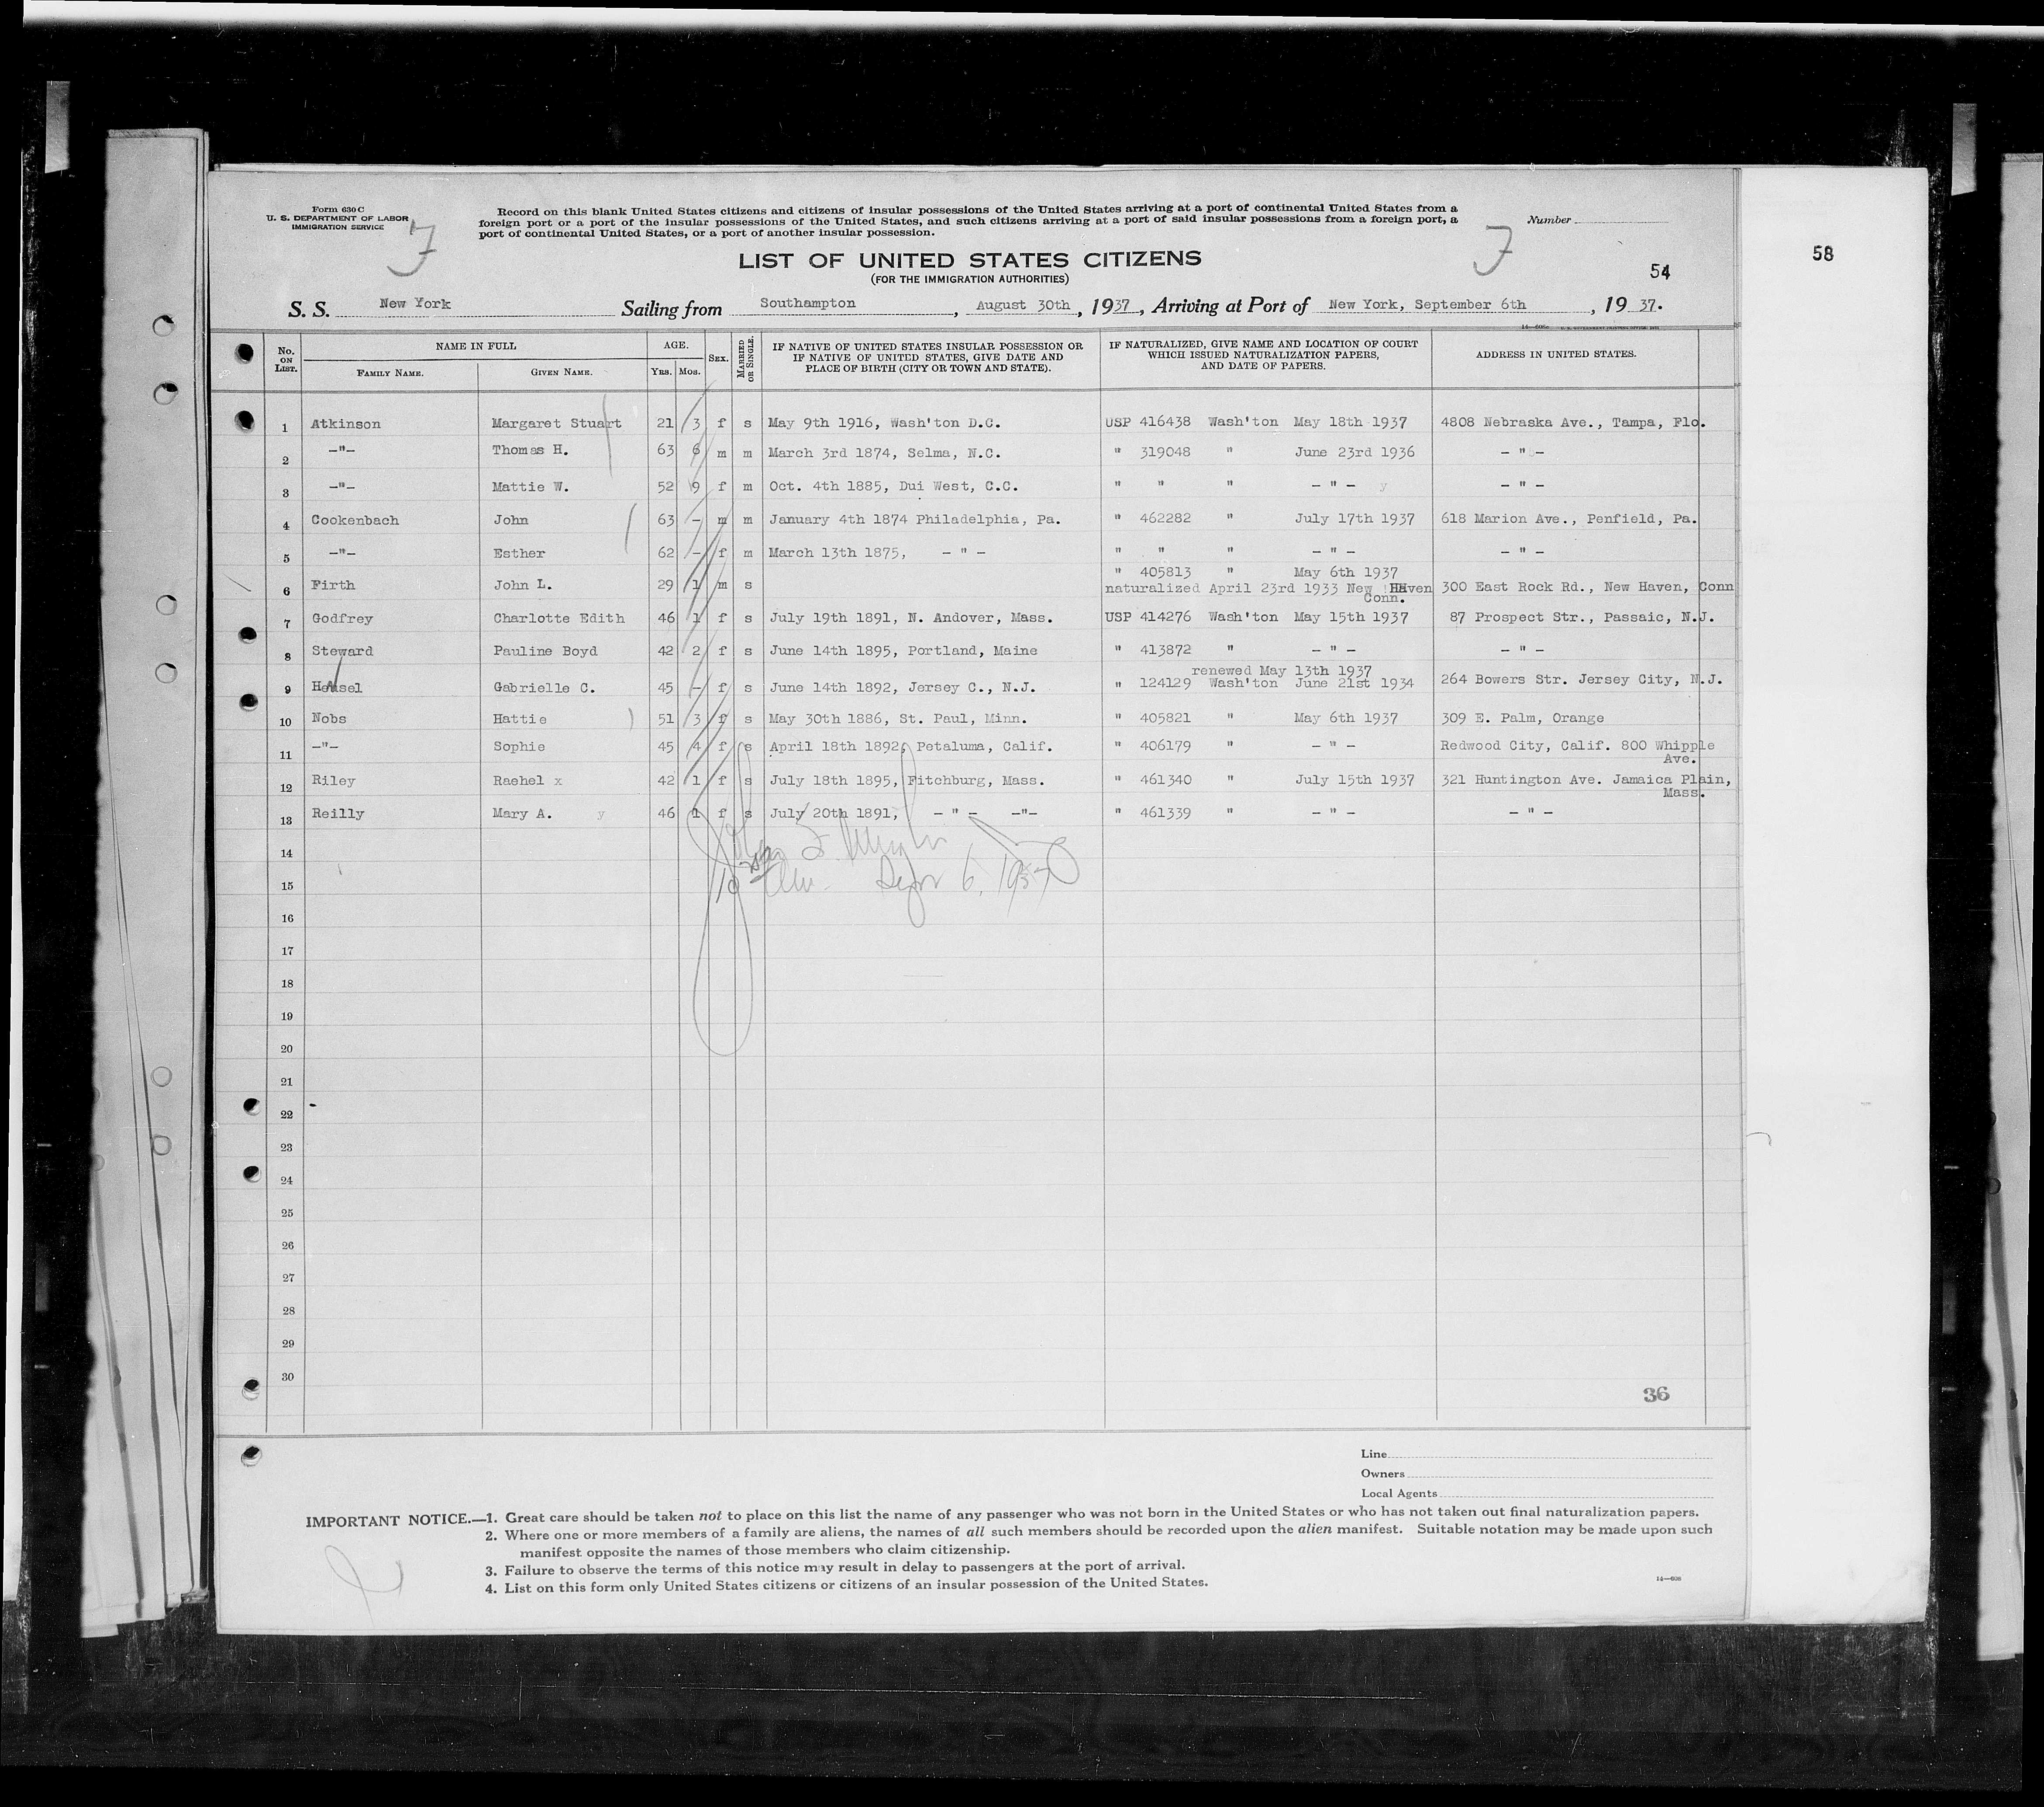 Form 630 C
U. S. DEPARTMENT OF LABOR
IMMIGRATION SERVICE
Record on this blank United States citizens and citizens of insular possessions of the United States arriving at a port of continental United States from a
foreign port or a port of the insular possessions of the United States, and such citizens arriving at a port of said insular possessions from a foreign port, a
port of continental United States, or a port of another insular possession.
Number
58
LIST OF UNITED STATES CITIZENS
(FOR THE IMMIGRATION AUTHORITIES)
54
S. S. New York Sailing from Southampton, August 30th, 1937, Arriving at Port of New York, September 6th, 1937.
No. ON LIST. NAME IN FULL FAMILY NAME. GIVEN NAME. AGE. YRS. MOS. SEX. MARRIED OR SINGLE. IF NATIVE OF UNITED STATES INSULAR POSSESSION OR IF NATIVE OF UNITED STATES, GIVE DATE AND PLACE OF BIRTH (CITY OR TOWN AND STATE). IF NATURALIZED, GIVE NAME AND LOCATION OF COURT WHICH ISSUED NATURALIZATION PAPERS, AND DATE OF PAPERS. ADDRESS IN UNITED STATES.
1 Atkinson Margaret Stuart 21 3 f s May 9th 1916, Wash'ton D.C. USP 416438 Wash'ton May 18th 1937 4808 Nebraska Ave., Tampa, Flo.
2 -"- Thomas H. 63 6 m m March 3rd 1874, Selma, N.C. " 319048 " June 23rd 1936 - " -
3 -"- Mattie W. 52 9 f m Oct. 4th 1885, Dui West, C.C. " " " - " - - " -
4 Cookenbach John 63 - m m January 4th 1874 Philadelphia, Pa. " 462282 " July 17th 1937 618 Marion Ave., Penfield, Pa.
5 -"- Esther 62 - f m March 13th 1875, - " - " " " - " - - " -
" 405813 " May 6th 1937
6 Firth John L. 29 1 m s naturalized April 23rd 1933 New Haven Conn. 300 East Rock Rd., New Haven, Conn
7 Godfrey Charlotte Edith 46 1 f s July 19th 1891, N. Andover, Mass. USP 414276 Wash'ton May 15th 1937 87 Prospect Str., Passaic, N.J.
8 Steward Pauline Boyd 42 2 f s June 14th 1895, Portland, Maine " 413872 " - " - - " -
renewed May 13th 1937
9 Hensel Gabrielle C. 45 - f s June 14th 1892, Jersey C., N.J. " 124129 Wash'ton June 21st 1934 264 Bowers Str. Jersey City, N.J.
10 Nobs Hattie 51 3 f s May 30th 1886, St. Paul, Minn. " 405821 " May 6th 1937 309 E. Palm, Orange
11 -"- Sophie 45 4 f s April 18th 1892, Petaluma, Calif. " 406179 " - " - Redwood City, Calif. 800 Whipple Ave.
12 Riley Raehel x 42 1 f s July 18th 1895, Fitchburg, Mass. " 461340 " July 15th 1937 321 Huntington Ave. Jamaica Plain, Mass.
13 Reilly Mary A. y 46 1 f s July 20th 1891, - " - -"- " 461339 " - " - - " -
14
15 Sept 6, 1937
16
17
18
19
20
21
22
23
24
25
26
27
28
29
30
36
Line
Owners
Local Agents
IMPORTANT NOTICE.—1. Great care should be taken not to place on this list the name of any passenger who was not born in the United States or who has not taken out final naturalization papers.
2. Where one or more members of a family are aliens, the names of all such members should be recorded upon the alien manifest. Suitable notation may be made upon such
manifest opposite the names of those members who claim citizenship.
3. Failure to observe the terms of this notice may result in delay to passengers at the port of arrival.
4. List on this form only United States citizens or citizens of an insular possession of the United States.
14—608